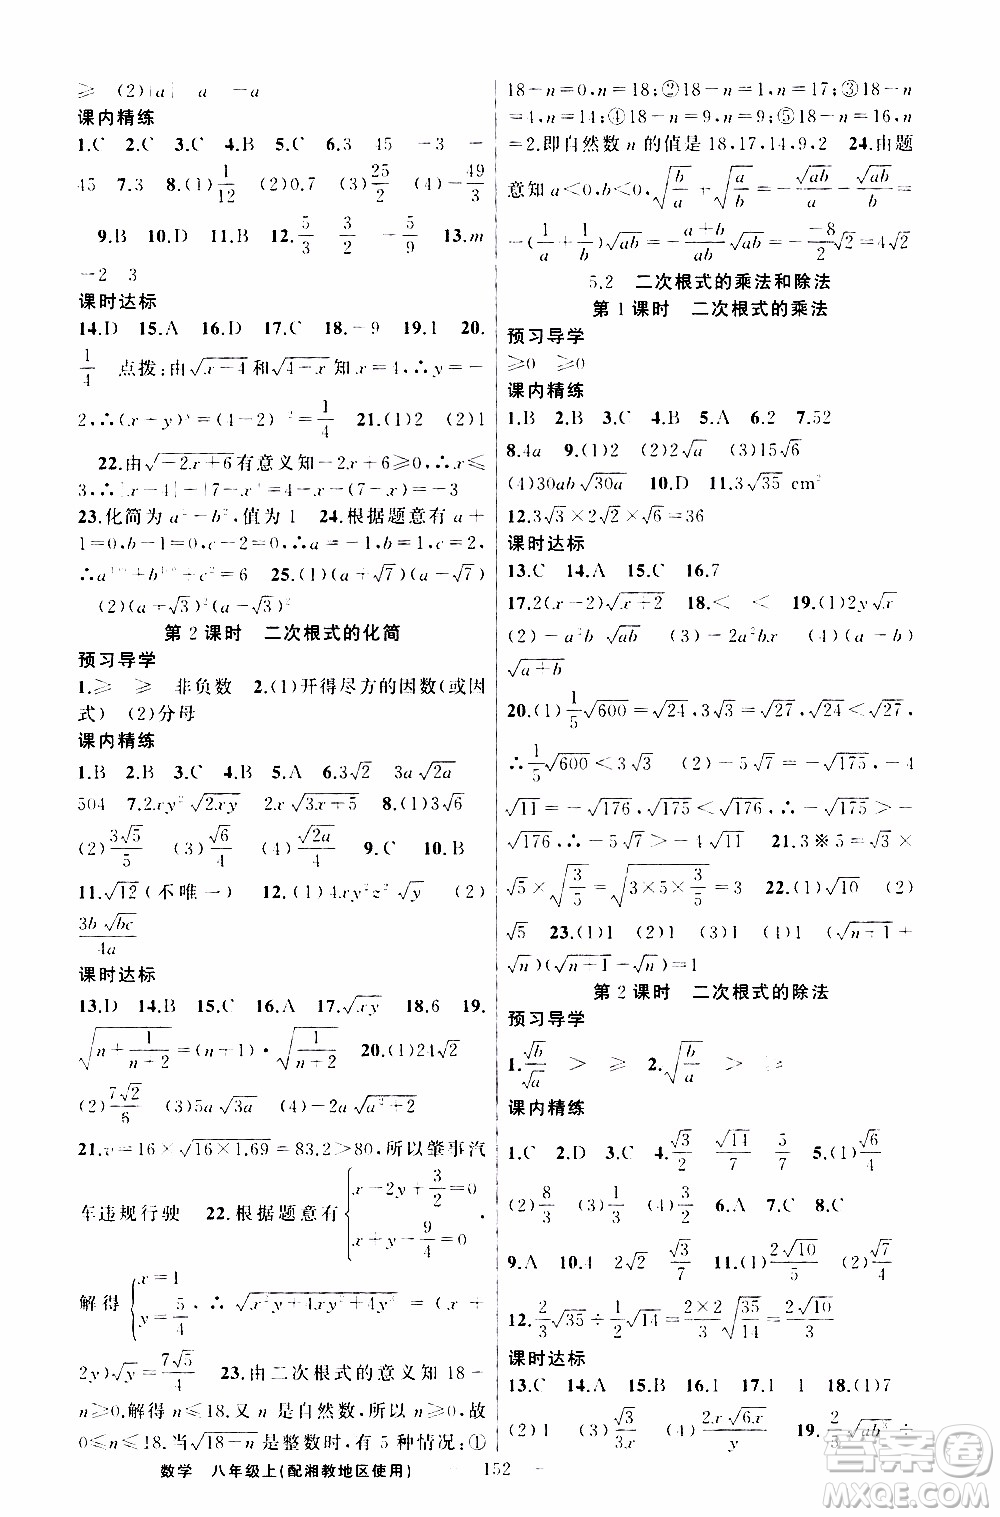 ≥ (2)|a| a -a
课内精练
1.C 2.C 3.C 4.C 5.C 6.3 45 -3 -
45 7.3 8.(1)1/12 (2)0.7 (3)25/2 (4)-49/3
9.B 10.D 11.B 12.5/3 3/5 -5/9 13.m
-2 3
课时达标
14.D 15.A 16.A 17.C 18.-9 19.1 20.
1/4 点拨:由√x-4和√4-x知x=4,∴y=-
2,∴(x+y)⁻²=(4-2)⁻²=1/4 21.(1)2 (2)1
22.由√-2x+6有意义知-2x+6≥0,∴x≤
3,∴|x-4|-|7-x|=4-x-(7-x)=-3
23.化简为a²-b²,值为1 24.根据题意有a+
1=0,b-1=0,c-2=0,∴a=-1,b=1,c=2.
=6 25.(1)(a+√7)(a-√7)
(2)(a+√3)²(a-√3)²
第2课时 二次根式的化简
预习导学
1.≥ ≥ 非负数 2.(1)开得尽方的因数(或因
式) (2)分母
课内精练
1.B 2.B 3.C 4.B 5.A 6.3√2 3a√2a
504 7.2xy²√2xy 2x√3x+5 8.(1)3√6
(2)3√5/5 (3)√6/4 (4)√2a/4 9.C 10.B
11.√12(不唯一) 12.(1)4xy²z²√y (2)
3b√bc/4a
课时达标
13.D 14.B 15.C 16.A 17.√xy 18.2 19.
√n+1/n+2=(n+1)·√1/n+2 20.(1)24√2
(2)7√2/6 (3)5a√3a (4)-4a√a²+2
21.v=16×√16×1.69=83.2>80,所以肇事汽
车违规行驶 22.根据题意有{x-2y+3/2=0 x+y-9/4=0.
解得{x=1 y=5/4,∴√x²y+4xy²+4y³=(x+
2y)√y=7√5/4 23.由二次根式的意义知18-
n≥0,解得n≤18.又n是自然数,故
0≤n≤18.当√18-n是整数时,有5种情况:①
18-n=0,n=18;②18-n=1,n=17;③18-n
=4,n=14;④18-n=9,n=9;⑤18-n=16,n
=2.即自然数n的值是18,17,14,9,2 24.由题
意知a<0,b<0,√b/a+√a/b=-√ab/a-√ab/b=
-(1/a+1/b)√ab=-a+b/ab√ab=--8/2√2=4√2
5.2 二次根式的乘法和除法
第1课时 二次根式的乘法
预习导学
≥0 ≥0
课内精练
1.B 2.B 3.C 4.B 5.A 6.2 7.52
8.4a 9.(1)2 (2)2√2 (3)15√5
(4)30ab√30a 10.D 11.3√35 cm²
12.3√3×2√2×√6=36
课时达标
13.C 14.A 15.C 16.7
17.2(x-2)√x+2 18.< < 19.(1)2√x
(2)-a²b√ab (3)-2a²bx (4)(a-b)
√a+b
20.(1)1/5√600=√24,3√3=√27,√24<√27,
∴1/5√600<3√3 (2)-5√7=-√175,-4
√11=-√176,√175<√176,∴-√175>-
√176,∴-5√7>-4√11 21.3※5=√3×
√5×√3/5=√3×5×3/5=3 22.(1)√10 (2)
√5 23.(1)1 (2)1 (3)1 (4)1 (√n+1+
√n)(√n+1-√n)=1
第2课时 二次根式的除法
预习导学
1.√b/√a > ≥ 2.√b/a > ≥
课内精练
1.C 2.D 3.C 4.√3/2 √14/7 5/7 5.(1)√6/4
(2)8/3 (3)4/3 (4)√3/2 6.A 7.B 8.B
9.A 10.4 2√2 √3/7 11.(1)2√10/5 (2)√7/4
12.2/3√35÷1/2√14=2×2/3√35/14=2√10/3
课时达标
13.C 14.A 15.B 16.1 17.1 1 18.(1)7
(2)1 (3)√3/3x (4)2x√6x/y 19.2/5√ab³÷
数学 八年级上(配湘教地区使用) 152
答案圈
MXQE.COM